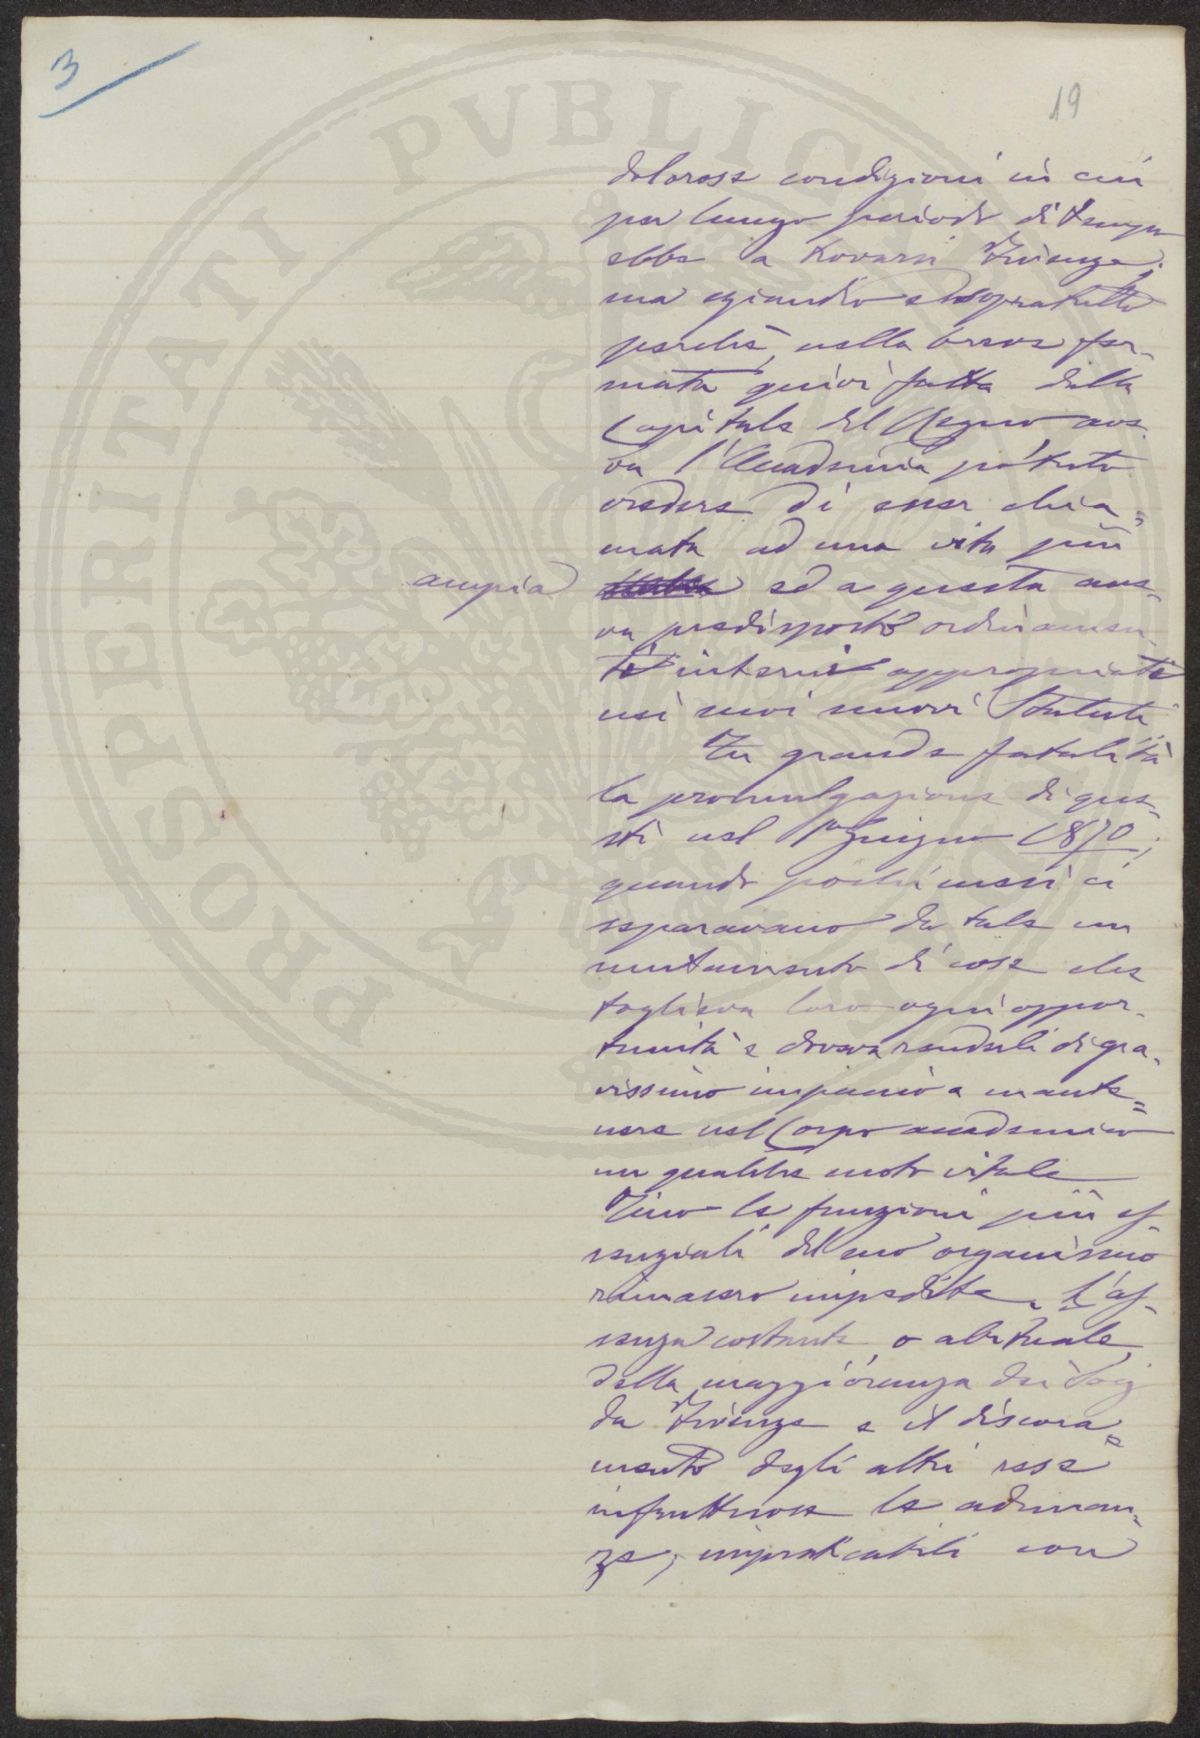 3
19
dolorose condizioni in cui
per lungo periodo di tempo
ebbe a trovarsi Firenze;
ma eziandio e sopratutto
perchè, nella breve fer-
mata quivi fatta dalla
Capitale del Regno ave-
va l'Accademia potuto
credere di esser chia=
mata ad una vita più
ampia
ed a questa ave=
va predisposto ordinamen-
ti interni appropriati
nei suoi nuovi Statuti
Fu grande fatalità
la promulgazione di que=
sti nel 1º giugno 1870;
quando pochi mesi ci
separavano da tale un
mutamento di cose che
toglieva loro ogni oppor-
tunità e doveva renderli di gra-
vissimo impaccio a mante=
nere nel Corpo accademico
un qualche moto vitale
Fino le funzioni più es-
senziali del suo organismo
rimasero impedite. L'as-
senza costante o abituale
della maggioranza dei Socj
da Firenze e il discora=
mento degli altri rese
infruttuose le adunan=
ze, impraticabili con
PROSPERITATI PVBLIC